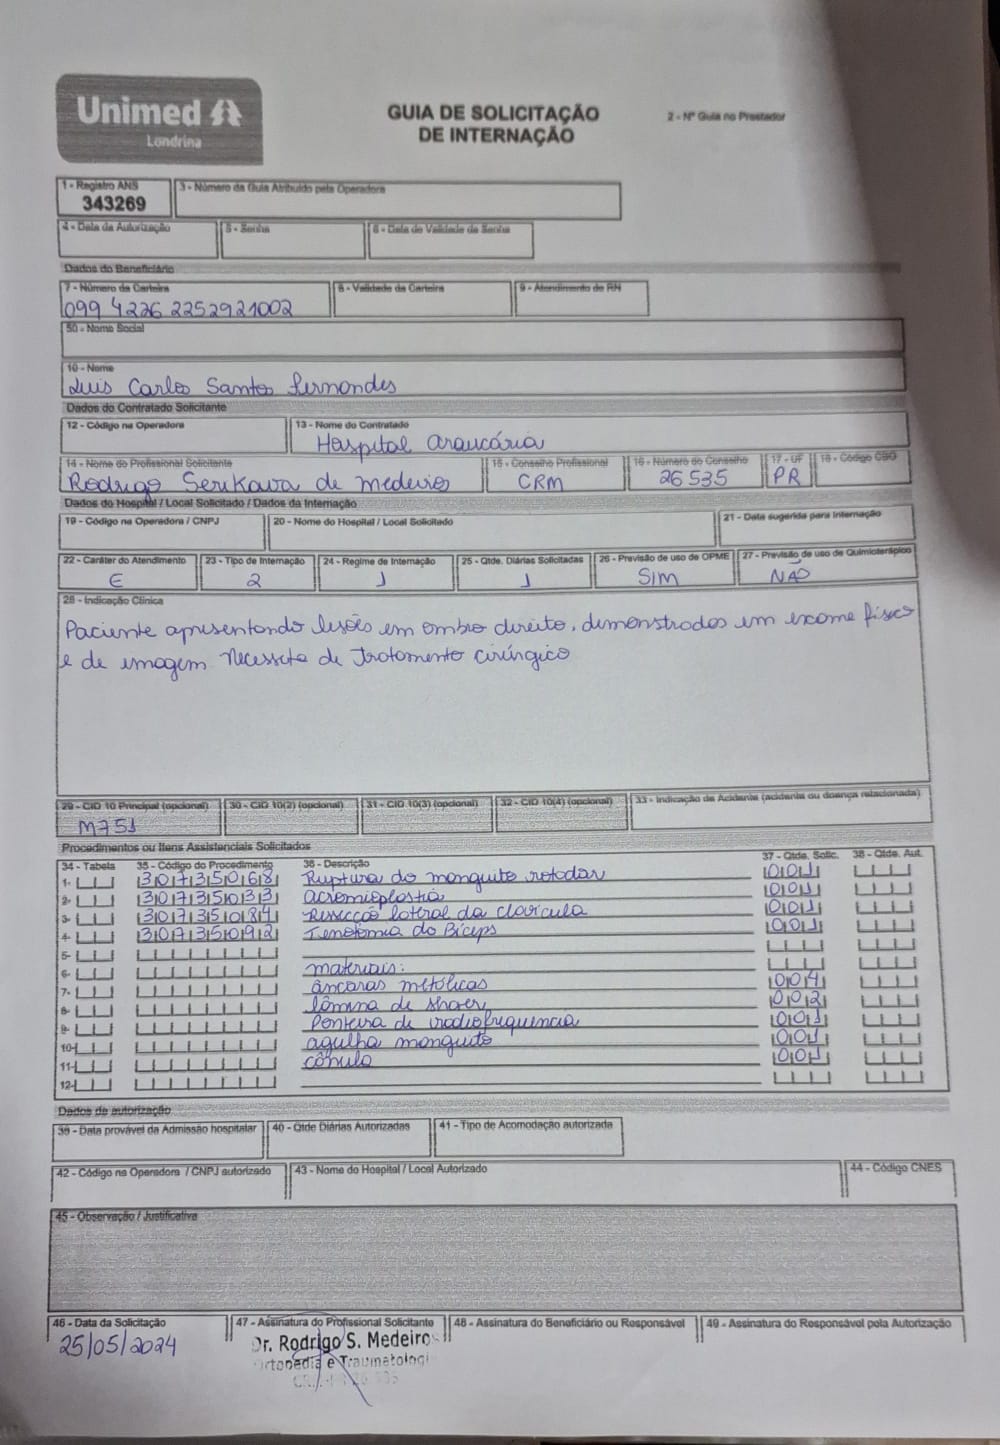 Unimed
Londrina
GUIA DE SOLICITAÇÃO
DE INTERNAÇÃO
2 - Nº Guia no Prestador
1 - Registro ANS
343269
3 - Número da Guia Atribuído pela Operadora
4 - Data da Autorização
5 - Senha
6 - Data de Validade da Senha
Dados do Beneficiário
7 - Número da Carteira
099 4226 2252921002
8 - Validade da Carteira
9 - Atendimento de RN
50 - Nome Social
10 - Nome
Luis Carlos Santos Fernandes
Dados do Contratado Solicitante
12 - Código na Operadora
13 - Nome do Contratado
Hospital Araucária
14 - Nome do Profissional Solicitante
Rodrigo Serikava de Medeiros
15 - Conselho Profissional
CRM
16 - Número do Conselho
26535
17 - UF
PR
18 - Código CBO
Dados do Hospital / Local Solicitado / Dados da Internação
19 - Código na Operadora / CNPJ
20 - Nome do Hospital / Local Solicitado
21 - Data sugerida para Internação
22 - Caráter do Atendimento
E
23 - Tipo de Internação
2
24 - Regime de Internação
1
25 - Qtde. Diárias Solicitadas
1
26 - Previsão de uso de OPME
SIM
27 - Previsão de uso de Quimioterápico
NÃO
28 - Indicação Clínica
Paciente apresentando lesões em ombro direito, demonstrados em exame físico
e de imagem necessita de tratamento cirúrgico
29 - CID 10 Principal (opcional)
M751
30 - CID 10(2) (opcional)
31 - CID 10(3) (opcional)
32 - CID 10(4) (opcional)
33 - Indicação de Acidente (acidente ou doença relacionada)
Procedimentos ou Itens Assistenciais Solicitados
34 - Tabela 35 - Código do Procedimento 36 - Descrição 37 - Qtde. Solic. 38 - Qtde. Aut.
1- 30735068 Ruptura do manguito rotador 001
2- 30735033 acromioplastia 001
3- 30735084 Ressecção lateral da clavícula 001
4- 30735092 Tenotomia do Bíceps 001
5-
6- materiais:
7- âncoras metálicas 004
8- lâmina de shaver 002
9- Ponteira de radiofrequencia 001
10- agulha manguito 001
11- cânula 001
12-
Dados da autorização
39 - Data provável da Admissão hospitalar
40 - Qtde Diárias Autorizadas
41 - Tipo de Acomodação autorizada
42 - Código na Operadora / CNPJ autorizado
43 - Nome do Hospital / Local Autorizado
44 - Código CNES
45 - Observação / Justificativa
46 - Data da Solicitação
25/05/2024
47 - Assinatura do Profissional Solicitante
Dr. Rodrigo S. Medeiros
rtopedia e Traumatologi
48 - Assinatura do Beneficiário ou Responsável
49 - Assinatura do Responsável pela Autorização